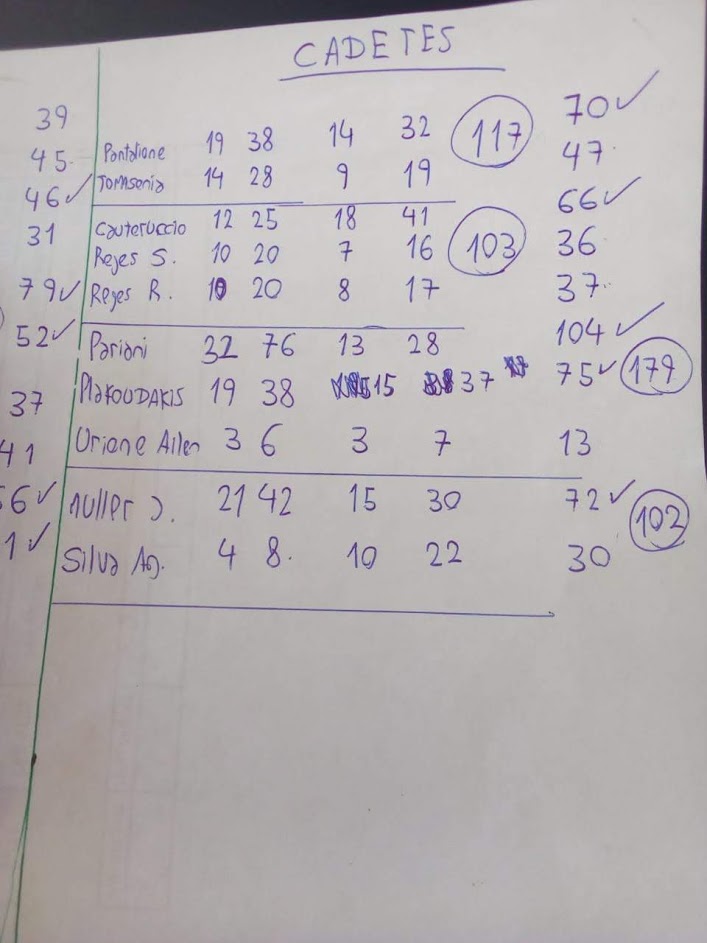 CADETES
39
45
46✓
31
79✓
52✓
37
41
56✓
1✓
Pantalione 19 38 14 32 117 70✓
Tomasonia 14 28 9 19 47
Cauteruccio 12 25 18 41 66✓
Reyes S. 10 20 7 16 103 36
Reyes R. 10 20 8 17 37
Pariani 32 76 13 28 104✓
Plakoudakis 19 38 15 37 75✓ 179
Oriane Ailen 3 6 3 7 13
Muller J. 21 42 15 30 72✓ 102
Silva Ag. 4 8. 10 22 30